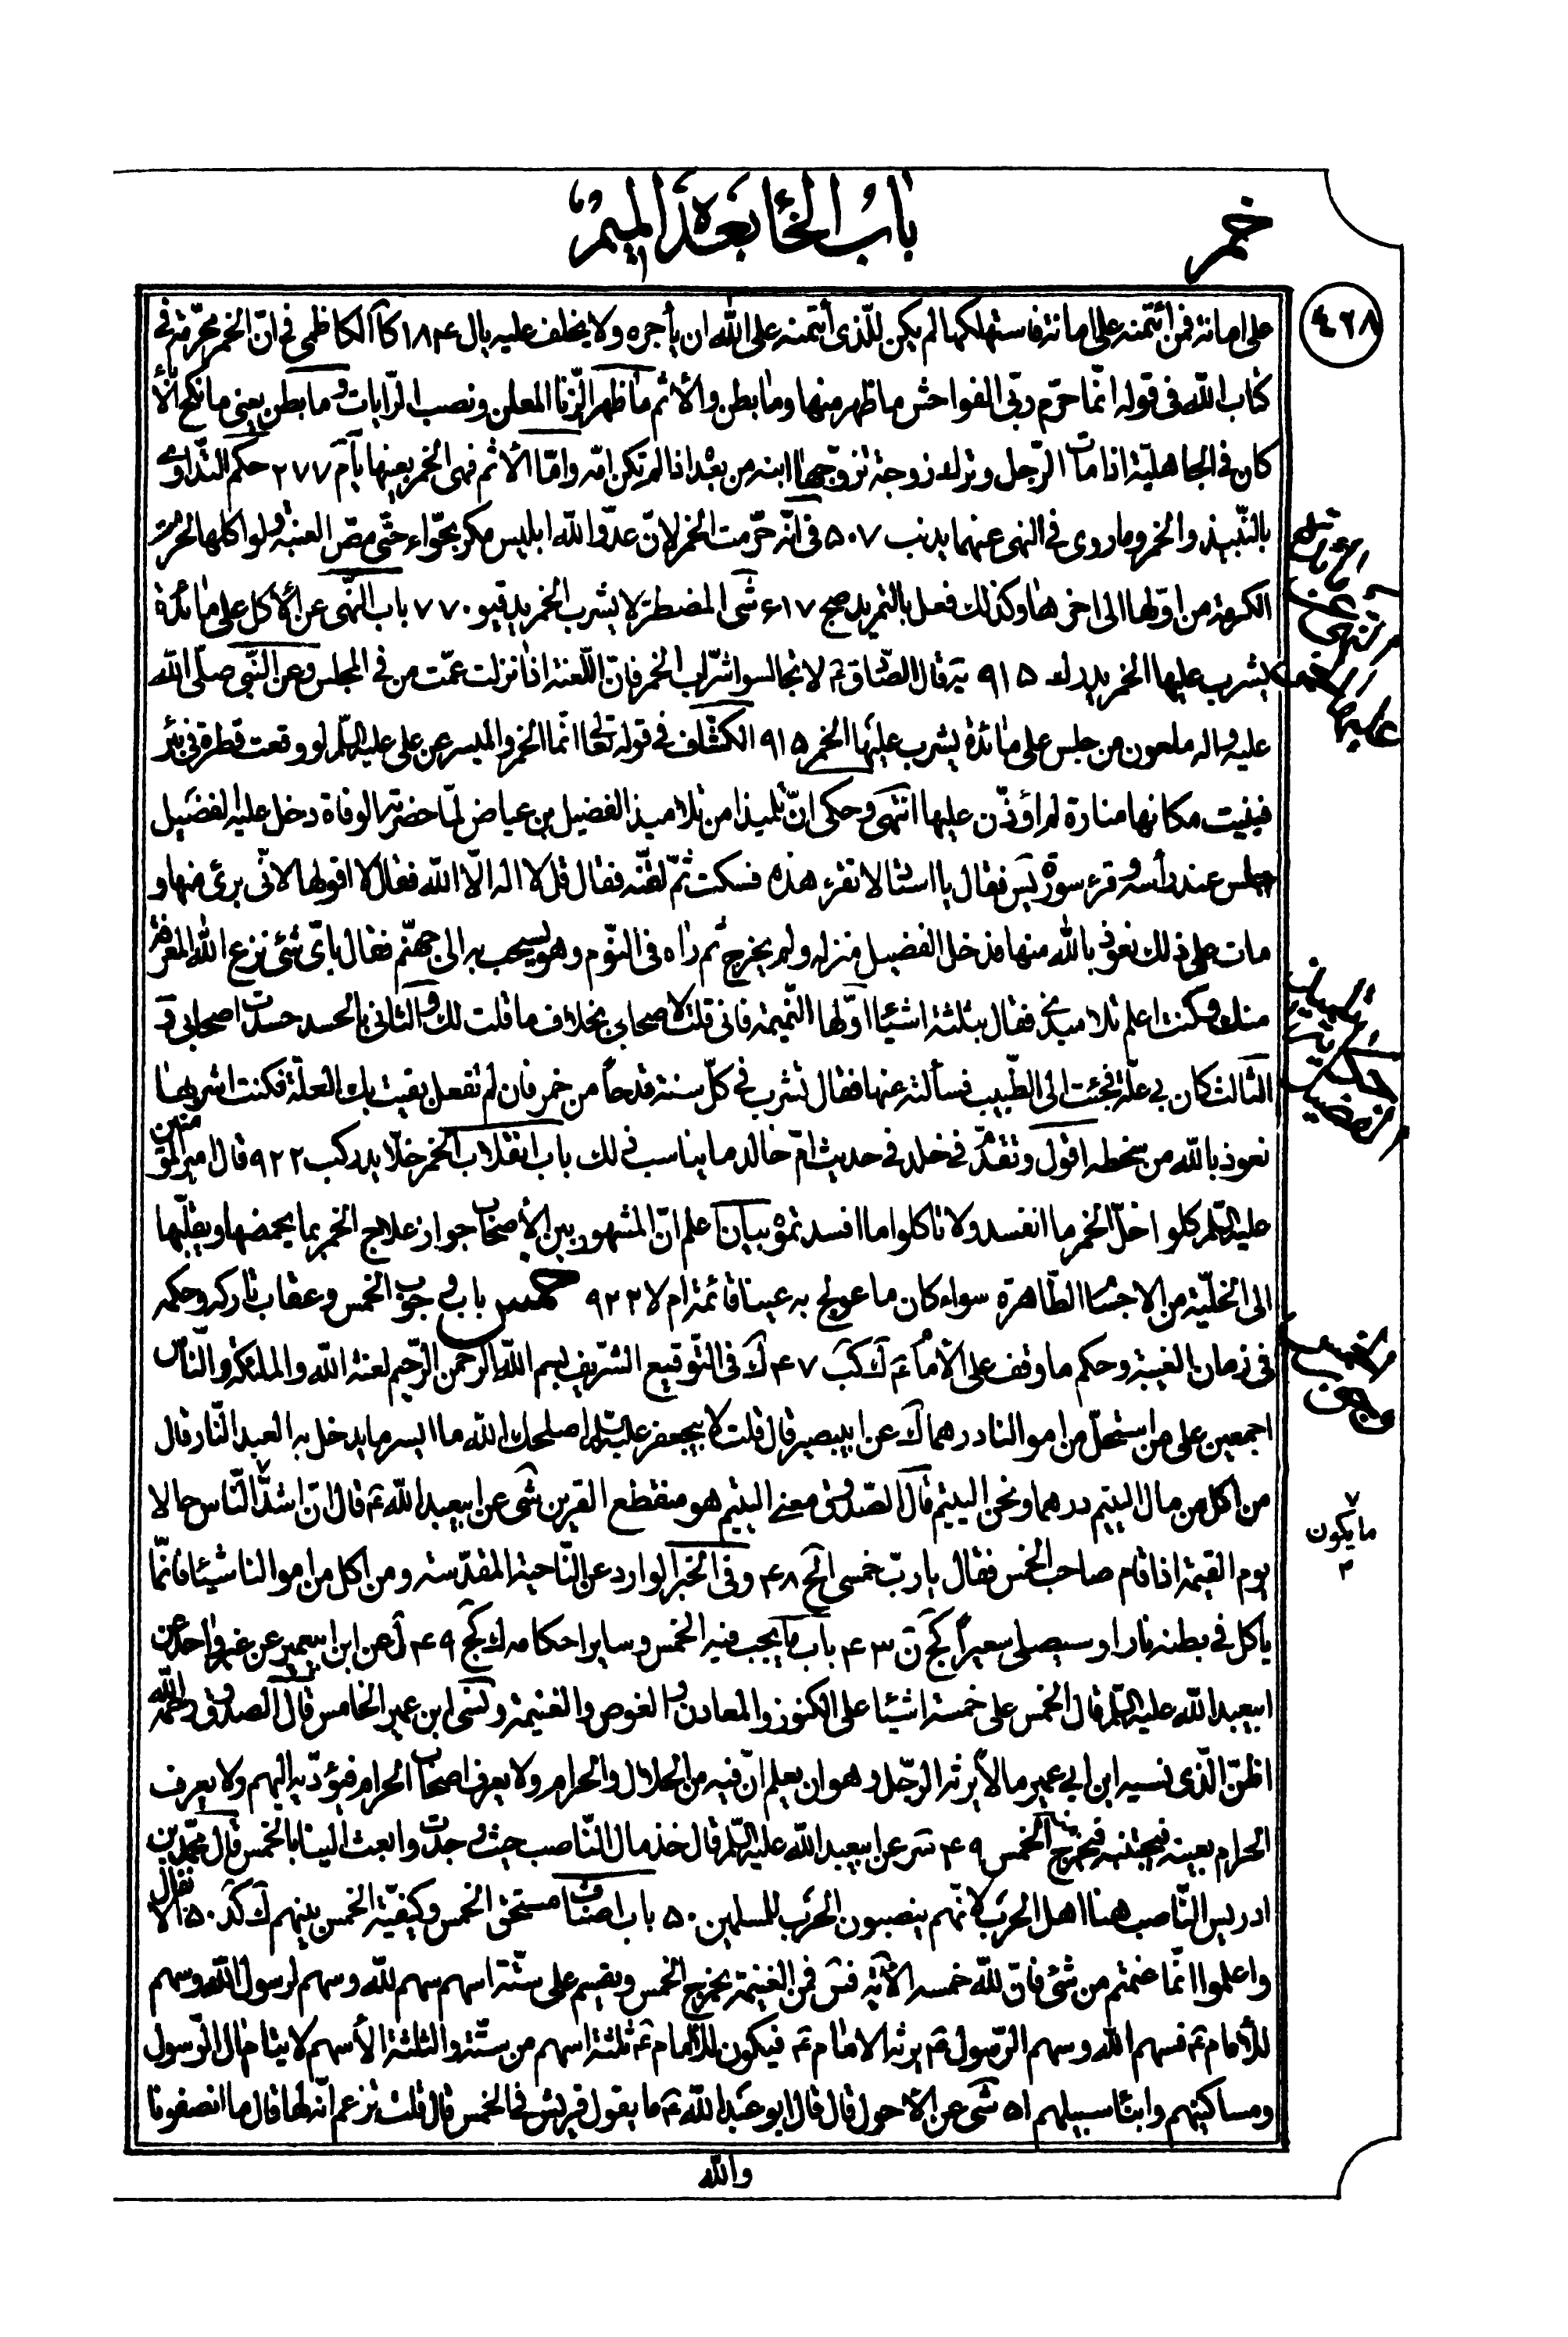 خمر
باب الخاء بعده الميم
٤٢٨
على امانة فمن ائتمنه على امانة فاستهلكها لم يكن للّذى أئتمنه على اللّه ان يأجره ولا يخلف عليه يال ١٨۴ كا الكاظمى فى انّ الخمر محرّمة فى
كتاب اللّه فى قوله انّما حرّم ربّى الفواحش ما ظهر منها وما بطن والأثم ما ظهر الزّنا المعلن ونصب الرّايات وما بطن يعنى ما نكح الأباء
كان فى الجاهليّة اذا مات الرّجل وترك زوجة تزوّجها ابنه من بعد اذا لم تكن امّه وامّا الأثم فهى الخمر بعينها يا م ٢٧٧ حكم التّداوى
بالنّبيذ والخمر وما روى فى النهى عنهما يد نب ۵٠٧ فى انّه حرّمت الخمر لانّ عدوّ اللّه ابليس مكر بحوّاء حتّى مصّ العنبة ولو اكلها لحرّمت
الكرمة من اوّلها الى اخرها وكذلك فعل بالتمر يد صح ۶١٧ شى المضطرّ لا يشرب الخمر يد قيو ٧٧٠ باب النّهى عن الأكل على مائدة
يشرب عليها الخمر يد رك ٩١۵ ية قال الصّادق ع لا تجالسوا شرّاب الخمر فانّ اللّعنة اذا نزلت عمّت من فى المجلس وعن النّبى صلّى اللّه
عليه واله ملعون من جلس على مائدة يشرب عليها الخمر ٩١۵ الكشّاف فى قوله تعالى انّما الخمر والميسر عن على عليه السّلم لو وقعت قطرة فى بئر
فبنيت مكانها منارة لم اؤذّن عليها انتهى وحكى انّ تلميذا من تلاميذ الفضيل بن عياض لمّا حضرته الوفاة دخل عليه الفضيل
وجلس عند رأسه وقرء سورة يس فقال يا استاد لا تقرء هذه فسكت ثمّ لقّنه فقال قل لا اله الّا اللّه فقال لا اقولها لانّى برئ منها و
مات على ذلك نعوذ باللّه منها فدخل الفضيل منزله ولم يخرج ثم راه فى النّوم وهو يسحب به الى جهنّم فقال باىّ شئ نزع اللّه المعرفة
منك وكنت اعلم تلاميذى فقال بثلثة اشياء اوّلها النّميمة فانى قلت لاصحابى بخلاف ما قلت لك والثانى بالحسد حسدت اصحابى و
الثالث كان بى علّة فجئت الى الطّبيب فسألته عنها فقال تشرب فى كلّ سنة قدحا من خمر فان لم تفعل بقيت بك العلّة فكنت اشربها
نعوذ باللّه من سخطه اقول وتقدّم فى خلد فى حديث امّ خالد ما يناسب ذلك باب انقلاب الخمر خلّا يد ركب ٩٢٢ قال امير المؤمنين
عليه السّلم كلوا خلّ الخمر ما انفسد ولا تاكلوا ما افسدتموه بيان اعلم انّ المشهور بين الأصحاب جواز علاج الخمر بما يحمضها ويقلّبها
الى الخلّية من الاجسام الطّاهرة سواء كان ما عولج به عينا قائمة ام لا ٩٢٢ خمس باب وجوب الخمس وعقاب تاركه وحكمه
فى زمان الغيبة وحكم ما وقف على الأمام ع ك كب ۴٧ ك فى التّوقيع الشّريف بسم اللّه الرّحمن الرّحيم لعنة اللّه والملئكة والنّاس
اجمعين على من استحلّ من اموالنا درهما ك عن ابيبصير قال قلت لابيجعفر عليه السّلم اصلحك اللّه ما ايسر ما يدخل به العبد النّار قال
من اكل من مال اليتيم درهما ونحن اليتيم قال الصّدوق معنى اليتيم هو منقطع القرين شى عن ابيعبد اللّه ع قال انّ اشدّ النّاس حالا
يوم القيمة اذا قام صاحب الخمس فقال يا ربّ خمسى الخ ۴٨ وفى الخبر الوارد عن النّاحية المقدّسة ومن اكل من اموالنا شيئا فانّما
ياكل فى بطنه نارا وسيصلى سعيرا كج ق ۴٣ باب ما يجب فيه الخمس وساير احكامه ك كج ۴٩ ل عن ابن ابيعمير عن غير واحد عن
ابيعبد اللّه عليه السّلم قال الخمس على خمسة اشياء على الكنوز والمعادن والغوص والغنيمة ونسى ابن عمير الخامس قال الصدوق رحمه اللّه
اظنّ الّذى نسيه ابن ابى عمير مالا يرثه الرّجل وهو ان يعلم انّ فيه من الحلال والحرام ولا يعرف اصحاب الحرام فيؤدّيه اليهم ولا يعرف
الحرام بعينه فيجتنبه فيخرج منه الخمس ۴٩ سر عن ابيعبد اللّه عليه السّلم قال خذ مال النّاصب حيث وجدت وابعث الينا بالخمس قال محمّد بن
ادريس النّاصب هنا اهل الحرب لانّهم ينصبون الحرب للمسلمين ۵٠ باب اصناف مستحق الخمس وكيفيّة الخمس بينهم ك كد ۵٠ الأنفال
واعلموا انّما غنمتم من شئ فانّ للّه خمسه الأية فس فمن الغنيمة يخرج الخمس ويقسم على ستّة اسهم سهم للّه وسهم لرسول اللّه وسهم
للأمام ع فسهم اللّه وسهم الرّسول ص يرثه الامام ع فيكون للأمام ع ثلثة اسهم من ستّة والثلثة الأسهم لايتام ال الرّسول
ومساكينهم وابناء سبيلهم ۵١ شى عن الأحول قال قال ابو عبد اللّه ع ما يقول قريش فى الخمس قال قلت تزعم انّه لها قال ما انصفونا
واللّه
النهى عن
عليها الخمر
حكاية
الفضيل
الخمس
وجوب
ما يكون